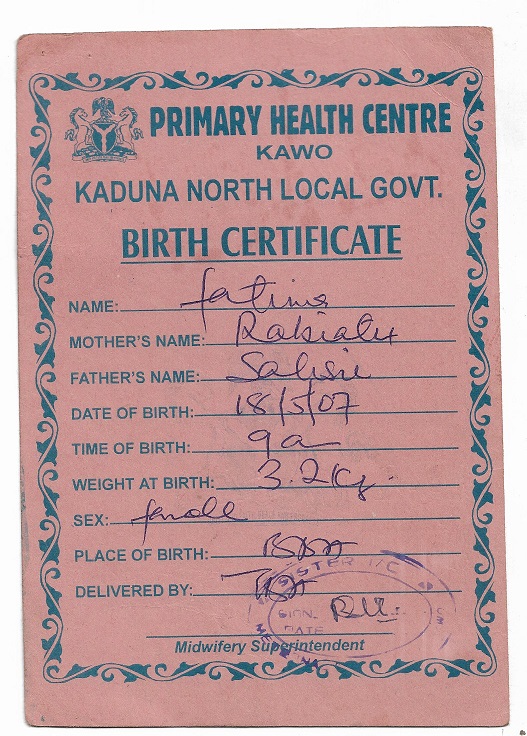 PRIMARY HEALTH CENTRE
KAWO
KADUNA NORTH LOCAL GOVT.
BIRTH CERTIFICATE
NAME: fatima
MOTHER'S NAME: Rabiatu
FATHER'S NAME:
DATE OF BIRTH: 18/5/07
TIME OF BIRTH: 9a
WEIGHT AT BIRTH: 3.2kg.
SEX: female
PLACE OF BIRTH: BBA
DELIVERED BY: TBA
SISTER I/C
SIGN.
DATE
Midwifery Superintendent